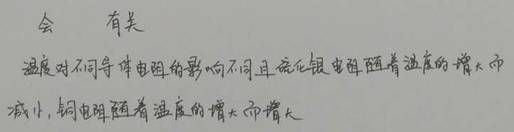 会 有关
温度对不同导体电阻的影响不同且硫化银电阻随着温度的增大而
减小,铜电阻随着温度的增大而增大